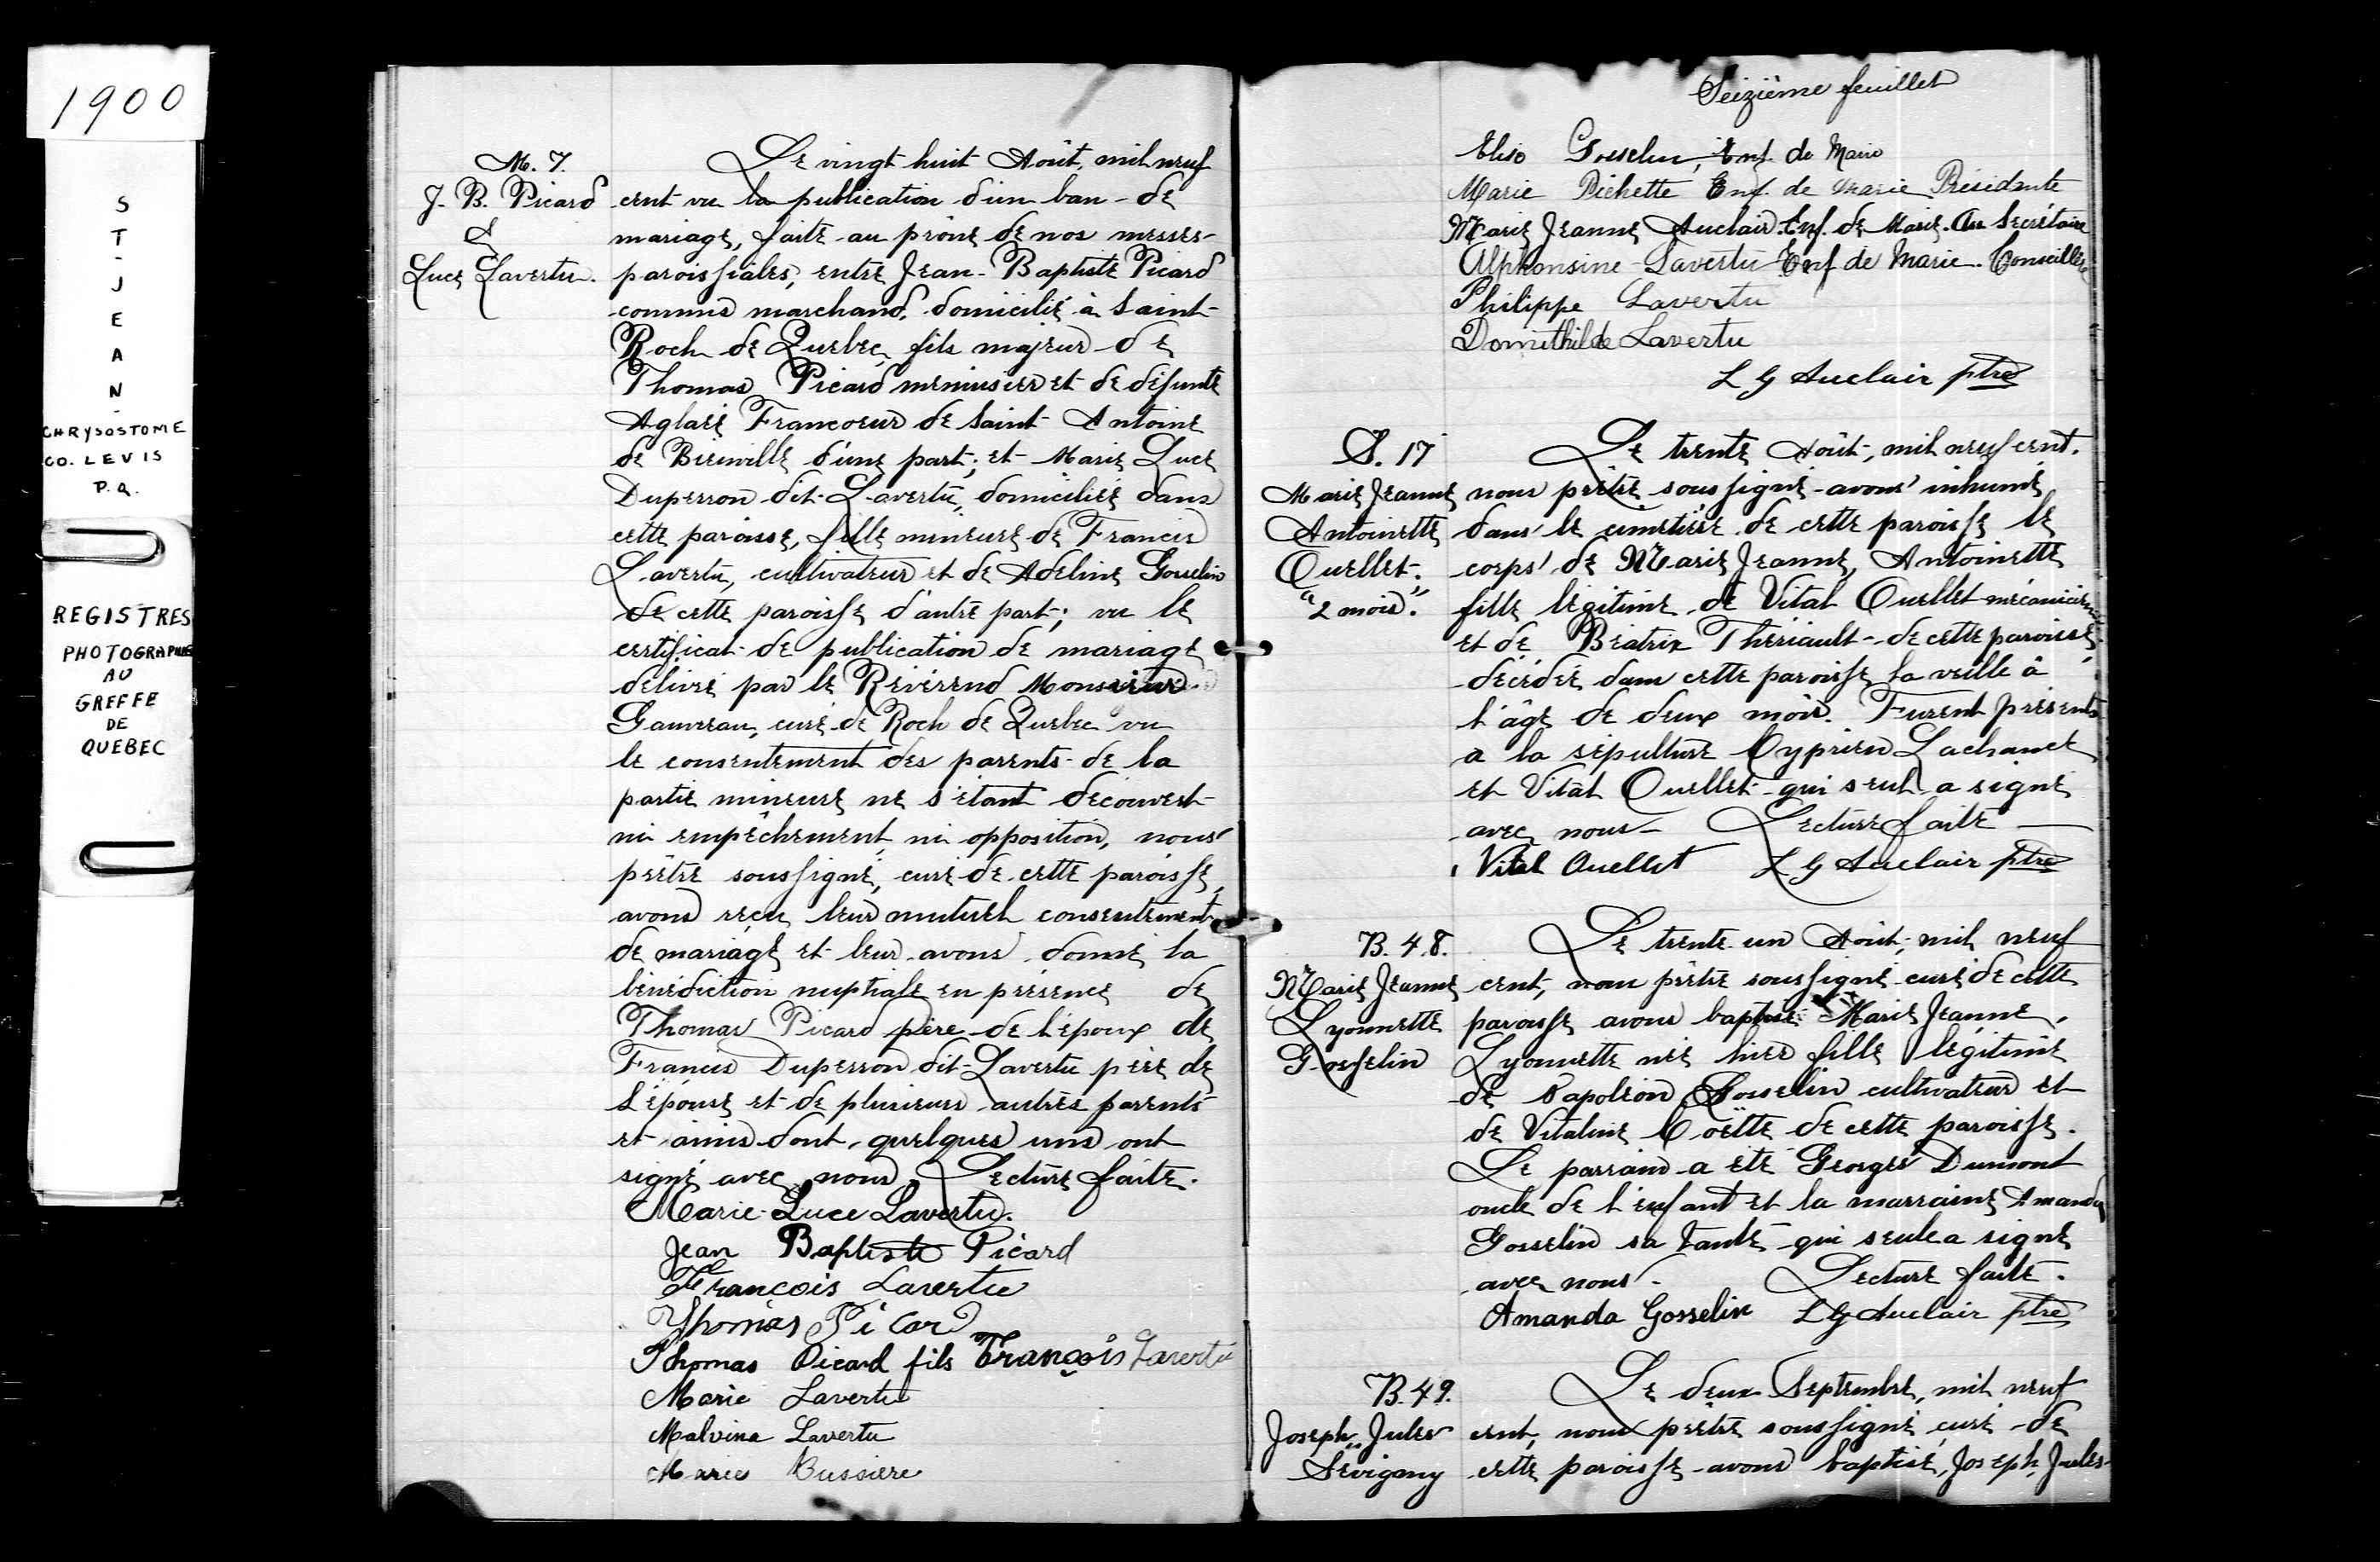 1900
S
T
-
J
E
A
N
-
CHRYSOSTOME
CO. LEVIS
P.Q.
REGISTRES
PHOTOGRAPHIÉ
AU
GREFFE
DE
QUEBEC
M. 7.
J. B. Picard
&
Luce Lavertu.
Le vingt huit Août, mil neuf
cent vu la publication d'un ban de
mariage, faite au prône de nos messes
paroissiales, entre Jean-Baptiste Picard
commis marchand, domicilié à Saint
Roch de Quebec, fils majeur de
Thomas Picard menuisier et de défunte
Aglaé Francoeur de Saint Antoine
de Bienville d'une part; et Marie Luce
Duperron dit Lavertu, domiciliée dans
cette paroisse, fille mineure de Francis
Lavertu, cultivateur et de Adeline Gosselin
de cette paroisse d'autre part; vu le
certificat de publication de mariage
délivré par le Révérend Monsieur
Gauvreau, curé de Roch de Quebec vu
le consentement des parents de la
partie mineure ne s'étant découvert
ni empêchement ni opposition, nous
prêtre soussigné, curé de cette paroisse,
avons reçu leur mutuel consentement
de mariage et leur avons donné la
bénédiction nuptiale en présence de
Thomas Picard père de l'époux de
Francis Duperron dit Lavertu père de
l'épouse et de plusieurs autres parents
et amis dont quelques uns ont
signé avec nous. Lecture faite.
Marie-Luce Lavertu.
Jean Baptiste Picard
François Lavertu
Thomas Picard
Thomas Picard fils François Lavertu
Marie Lavertu
Malvina Lavertu
Marie Bussiere
Seizième feuillet
Eliso Gosselin, Enf. de Marie
Marie Pichette Enf. de Marie Présidente
Marie Jeanne Auclair Enf. de Marie. Secrétaire
Alphonsine Lavertu Enf de Marie. Conseillère
Philippe Lavertu
Domithilde Lavertu
L G Auclair ptre
S. 17
Marie Jeanne
Antoinette
Ouellet.
"2 mois."
Le trente Août, mil neuf cent.
nous prêtre soussigné avons inhumé
dans le cimetière de cette paroisse le
corps de Marie Jeanne, Antoinette
fille légitime de Vital Ouellet mécanicien
et de Béatrix Thériault de cette paroisse,
décédée dans cette paroisse la veille à
l'âge de deux mois. Furent présents
a la sépulture Cyprien Lachance
et Vital Ouellet qui seul a signé
avec nous - Lecture faite
Vital Ouellet L G Auclair ptre
B. 48.
Marie Jeanne
Lyonnette
Gosselin
Le trente un Août, mil neuf
cent, nous prêtre soussigné curé de cette
paroisse avons baptisé Marie Jeanne,
Lyonnette née hier fille légitime
de Napoléon Gosselin cultivateur et
de Vitaline Coëtte de cette paroisse.
Le parrain a été Georges Dumont
oncle de l'enfant et la marraine Amanda
Gosselin sa tante qui seule a signé
avec nous. Lecture faite.
Amanda Gosselin L G Auclair ptre
B. 49.
Joseph Jules
Sévigny
Le deux Septembre, mil neuf
cent, nous prêtre soussigné curé de
cette paroisse avons baptisé, Joseph, Jules